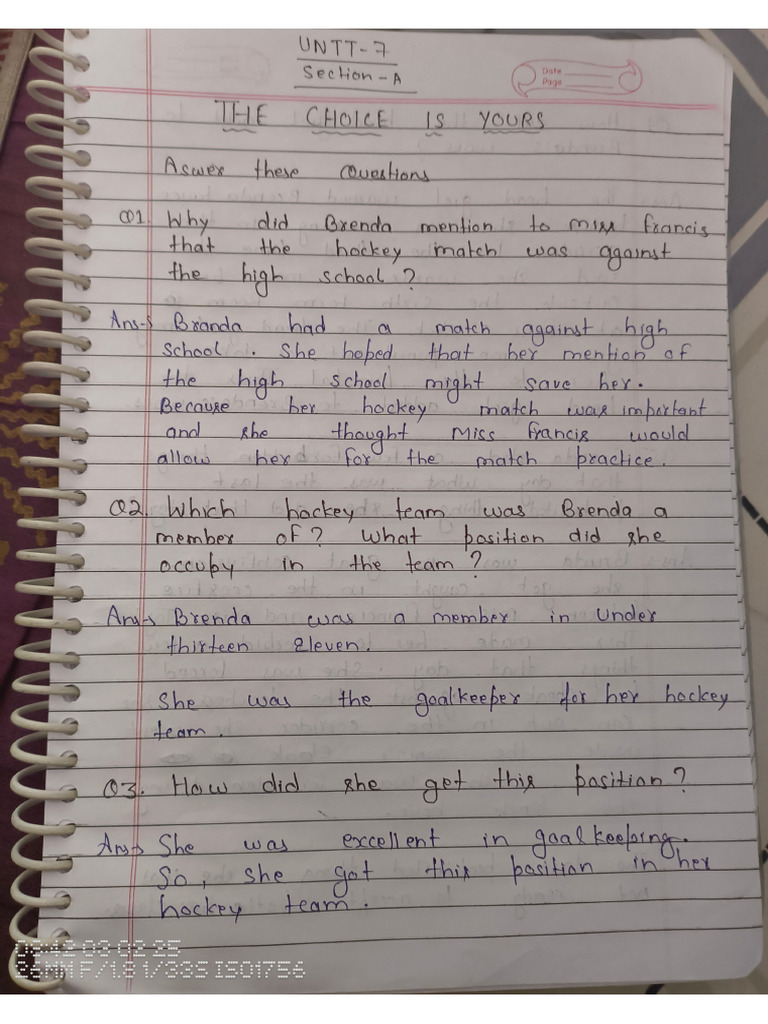 UNIT-7
Section-A
Date
Page
THE CHOICE IS YOURS
Aswer these Questions
Q1. Why did Brenda mention to miss francis
that the hockey match was against
the high school?
Ans→ Branda had a match against high
school. She hoped that her mention of
the high school might save her.
Because her hockey match was important
and she thought Miss francis would
allow her for the match practice.
Q2. Which hockey team was Brenda a
member of? What position did she
occupy in the team?
Ans→ Brenda was a member in Under
thirteen Eleven.
She was the goalkeeper for her hockey
team.
Q3. How did she get this position?
Ans→ She was excellent in goalkeeping.
So, she got this position in her
hockey team.